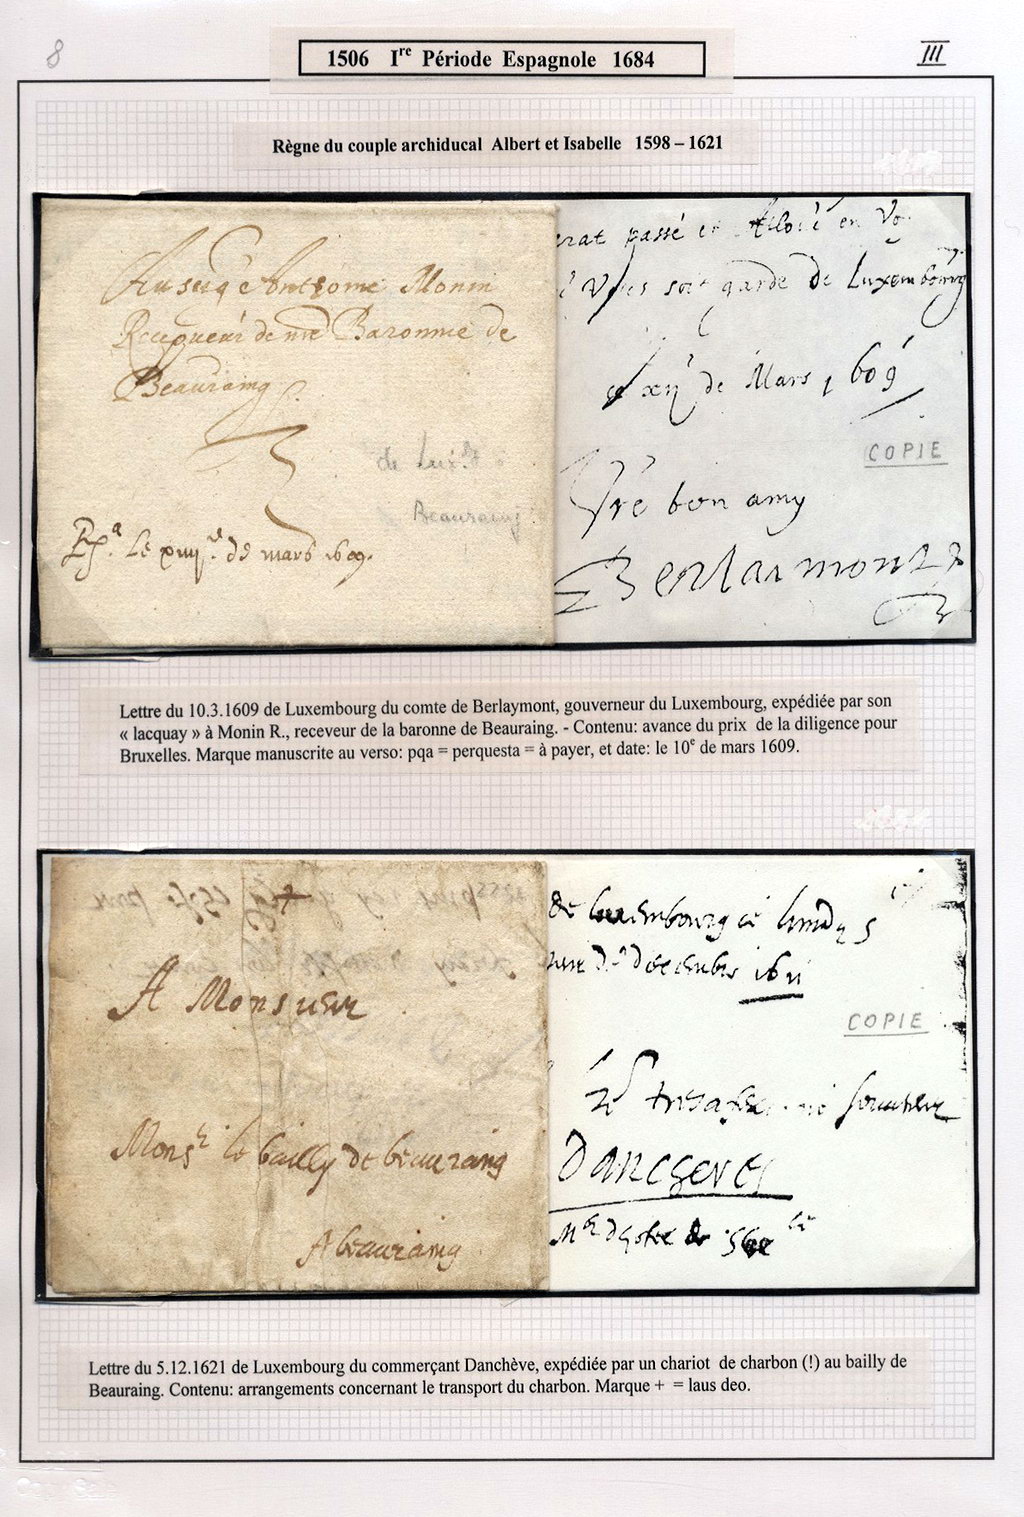 8
1506 Ire Période Espagnole 1684
III
Règne du couple archiducal Albert et Isabelle 1598 – 1621
Anthoine Monin
Recepveur de me Baronnie de
Beauraing
de Lux.
Beauraing
Le de mars 1609.
passé et en
garde de Luxembourg
de Mars 1609
COPIE
Vre bon amy
Berlaimont
Lettre du 10.3.1609 de Luxembourg du comte de Berlaymont, gouverneur du Luxembourg, expédiée par son
« lacquay » à Monin R., receveur de la baronne de Beauraing. - Contenu: avance du prix de la diligence pour
Bruxelles. Marque manuscrite au verso: pqa = perquesta = à payer, et date: le 10e de mars 1609.
A Monsieur
Monsr le bailly de beauraing
A beauraing
de Luxembourg ce 5
COPIE
Lettre du 5.12.1621 de Luxembourg du commerçant Danchève, expédiée par un chariot de charbon (!) au bailly de
Beauraing. Contenu: arrangements concernant le transport du charbon. Marque + = laus deo.